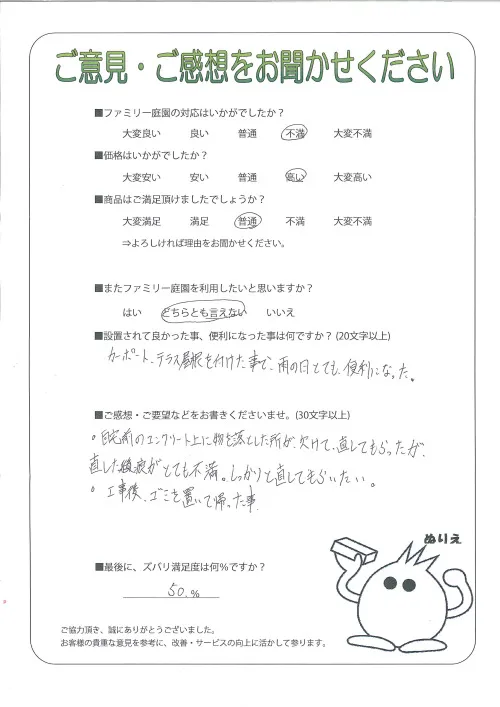 ご意見・ご感想をお聞かせください
■ファミリー庭園の対応はいかがでしたか？
大変良い 良い 普通 不満 大変不満
■価格はいかがでしたか？
大変安い 安い 普通 高い 大変高い
■商品はご満足頂けましたでしょうか？
大変満足 満足 普通 不満 大変不満
⇒よろしければ理由をお聞かせください。
■またファミリー庭園を利用したいと思いますか？
はい どちらとも言えない いいえ
■設置されて良かった事、便利になった事は何ですか？(20文字以上)
カーポート、テラス屋根を付けた事で、雨の日とても、便利になった。
■ご感想・ご要望などをお書きくださいませ。(30文字以上)
。自宅前のコンクリート上に物を落とした所が、欠けて、直してもらったが、
直した後痕がとても不満。しっかりと直してもらいたい。
。工事後、ゴミを置いて帰った事
ぬりえ
■最後に、ズバリ満足度は何%ですか？
50.%
ご協力頂き、誠にありがとうございました。
お客様の貴重な意見を参考に、改善・サービスの向上に活かして参ります。